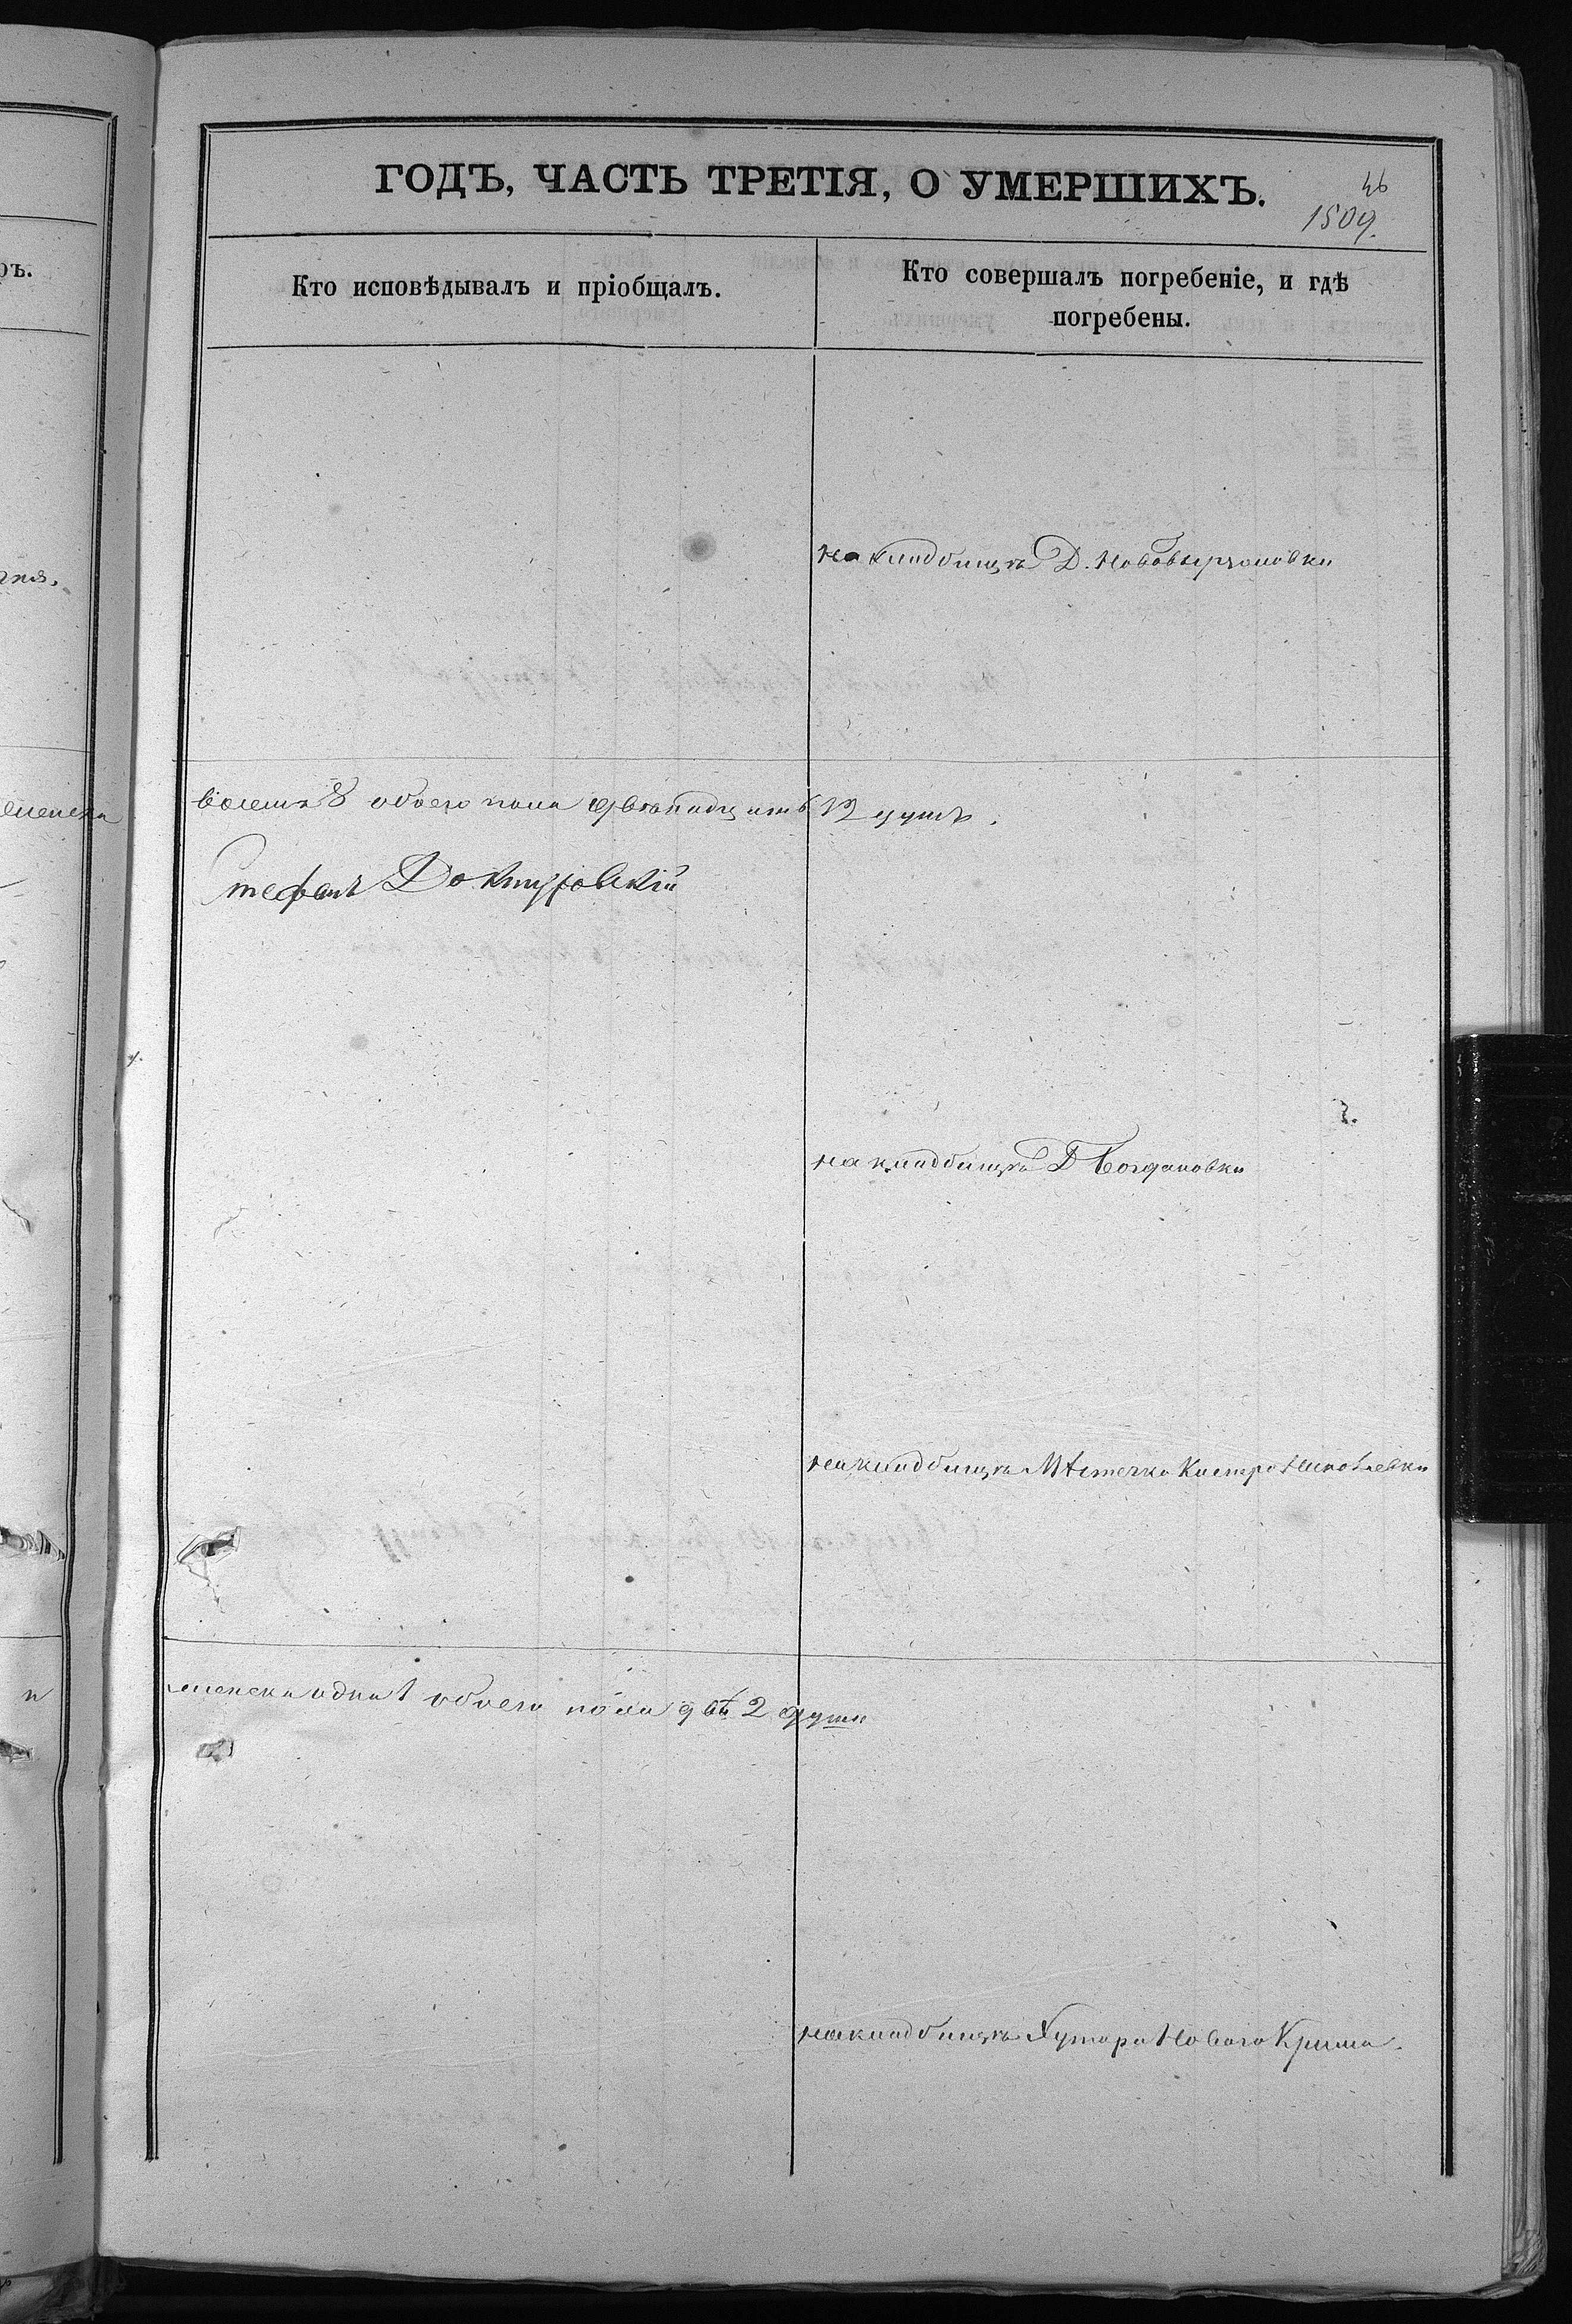 ГОДЪ, ЧАСТЬ ТРЕТІЯ, О УМЕРШИХЪ.
46
1509.
Кто исповѣдывалъ и пріобщалъ.
Кто совершалъ погребеніе, и гдѣ
погребены.
на кладбищѣ Д.
восемь 8 обоего пола двѣнадцать 12 душъ.
Стефанъ Доктуровскій
на кладбищѣ Д Богдановки
на кладбищѣ Мѣстечка
женска одна 1 обоего пола двѣ 2 души
на кладбищѣ Хутора Новаго Крыма.